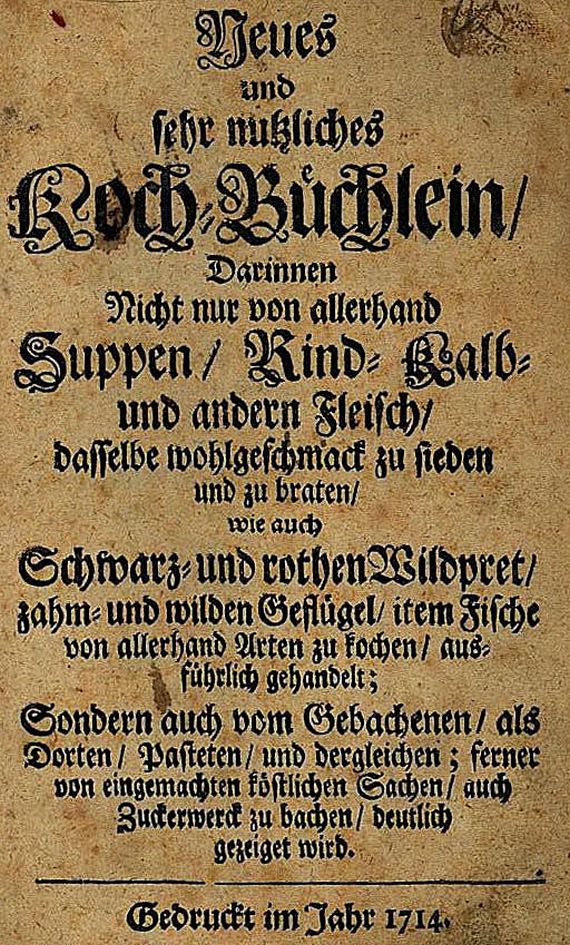 Neues
und
sehr nutzliches
Koch-Büchlein/
Darinnen
Nicht nur von allerhand
Suppen / Rind- Kalb-
und andern Fleisch/
dasselbe wohlgeschmack zu sieden
und zu braten/
wie auch
Schwarz- und rothen Wildpret/
zahm- und wilden Geflügel/ item Fische
von allerhand Arten zu kochen/ aus-
führlich gehandelt;
Sondern auch vom Gebachenen/ als
Dorten/ Pasteten/ und dergleichen; ferner
von eingemachten köstlichen Sachen/ auch
Zuckerwerck zu bachen/ deutlich
gezeiget wird.
Gedruckt im Jahr 1714.